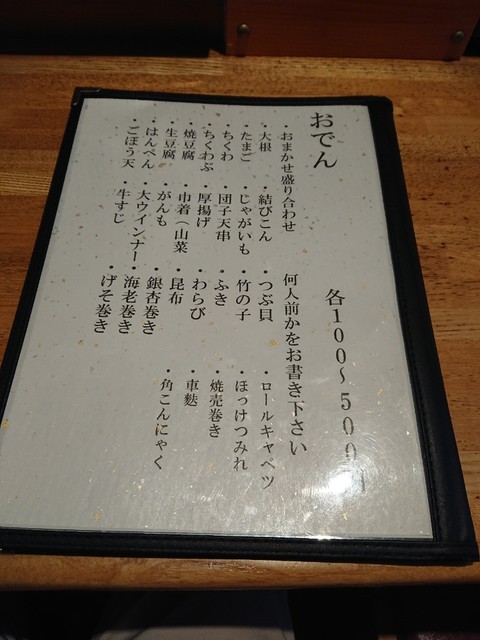 おでん 各100～500円
・おまかせ盛り合わせ 何人前かをお書き下さい
・大根 ・結びこん ・つぶ貝 ・ロールキャベツ
・たまご ・じゃがいも ・竹の子 ・ほっけつみれ
・ちくわ ・団子天串 ・ふき ・焼売巻き
・ちくわぶ ・厚揚げ ・わらび ・車麩
・焼豆腐 ・巾着（山菜 ・昆布 ・角こんにゃく
・生豆腐 ・がんも ・銀杏巻き
・はんぺん ・大ウインナー ・海老巻き
・ごぼう天 ・牛すじ ・げそ巻き